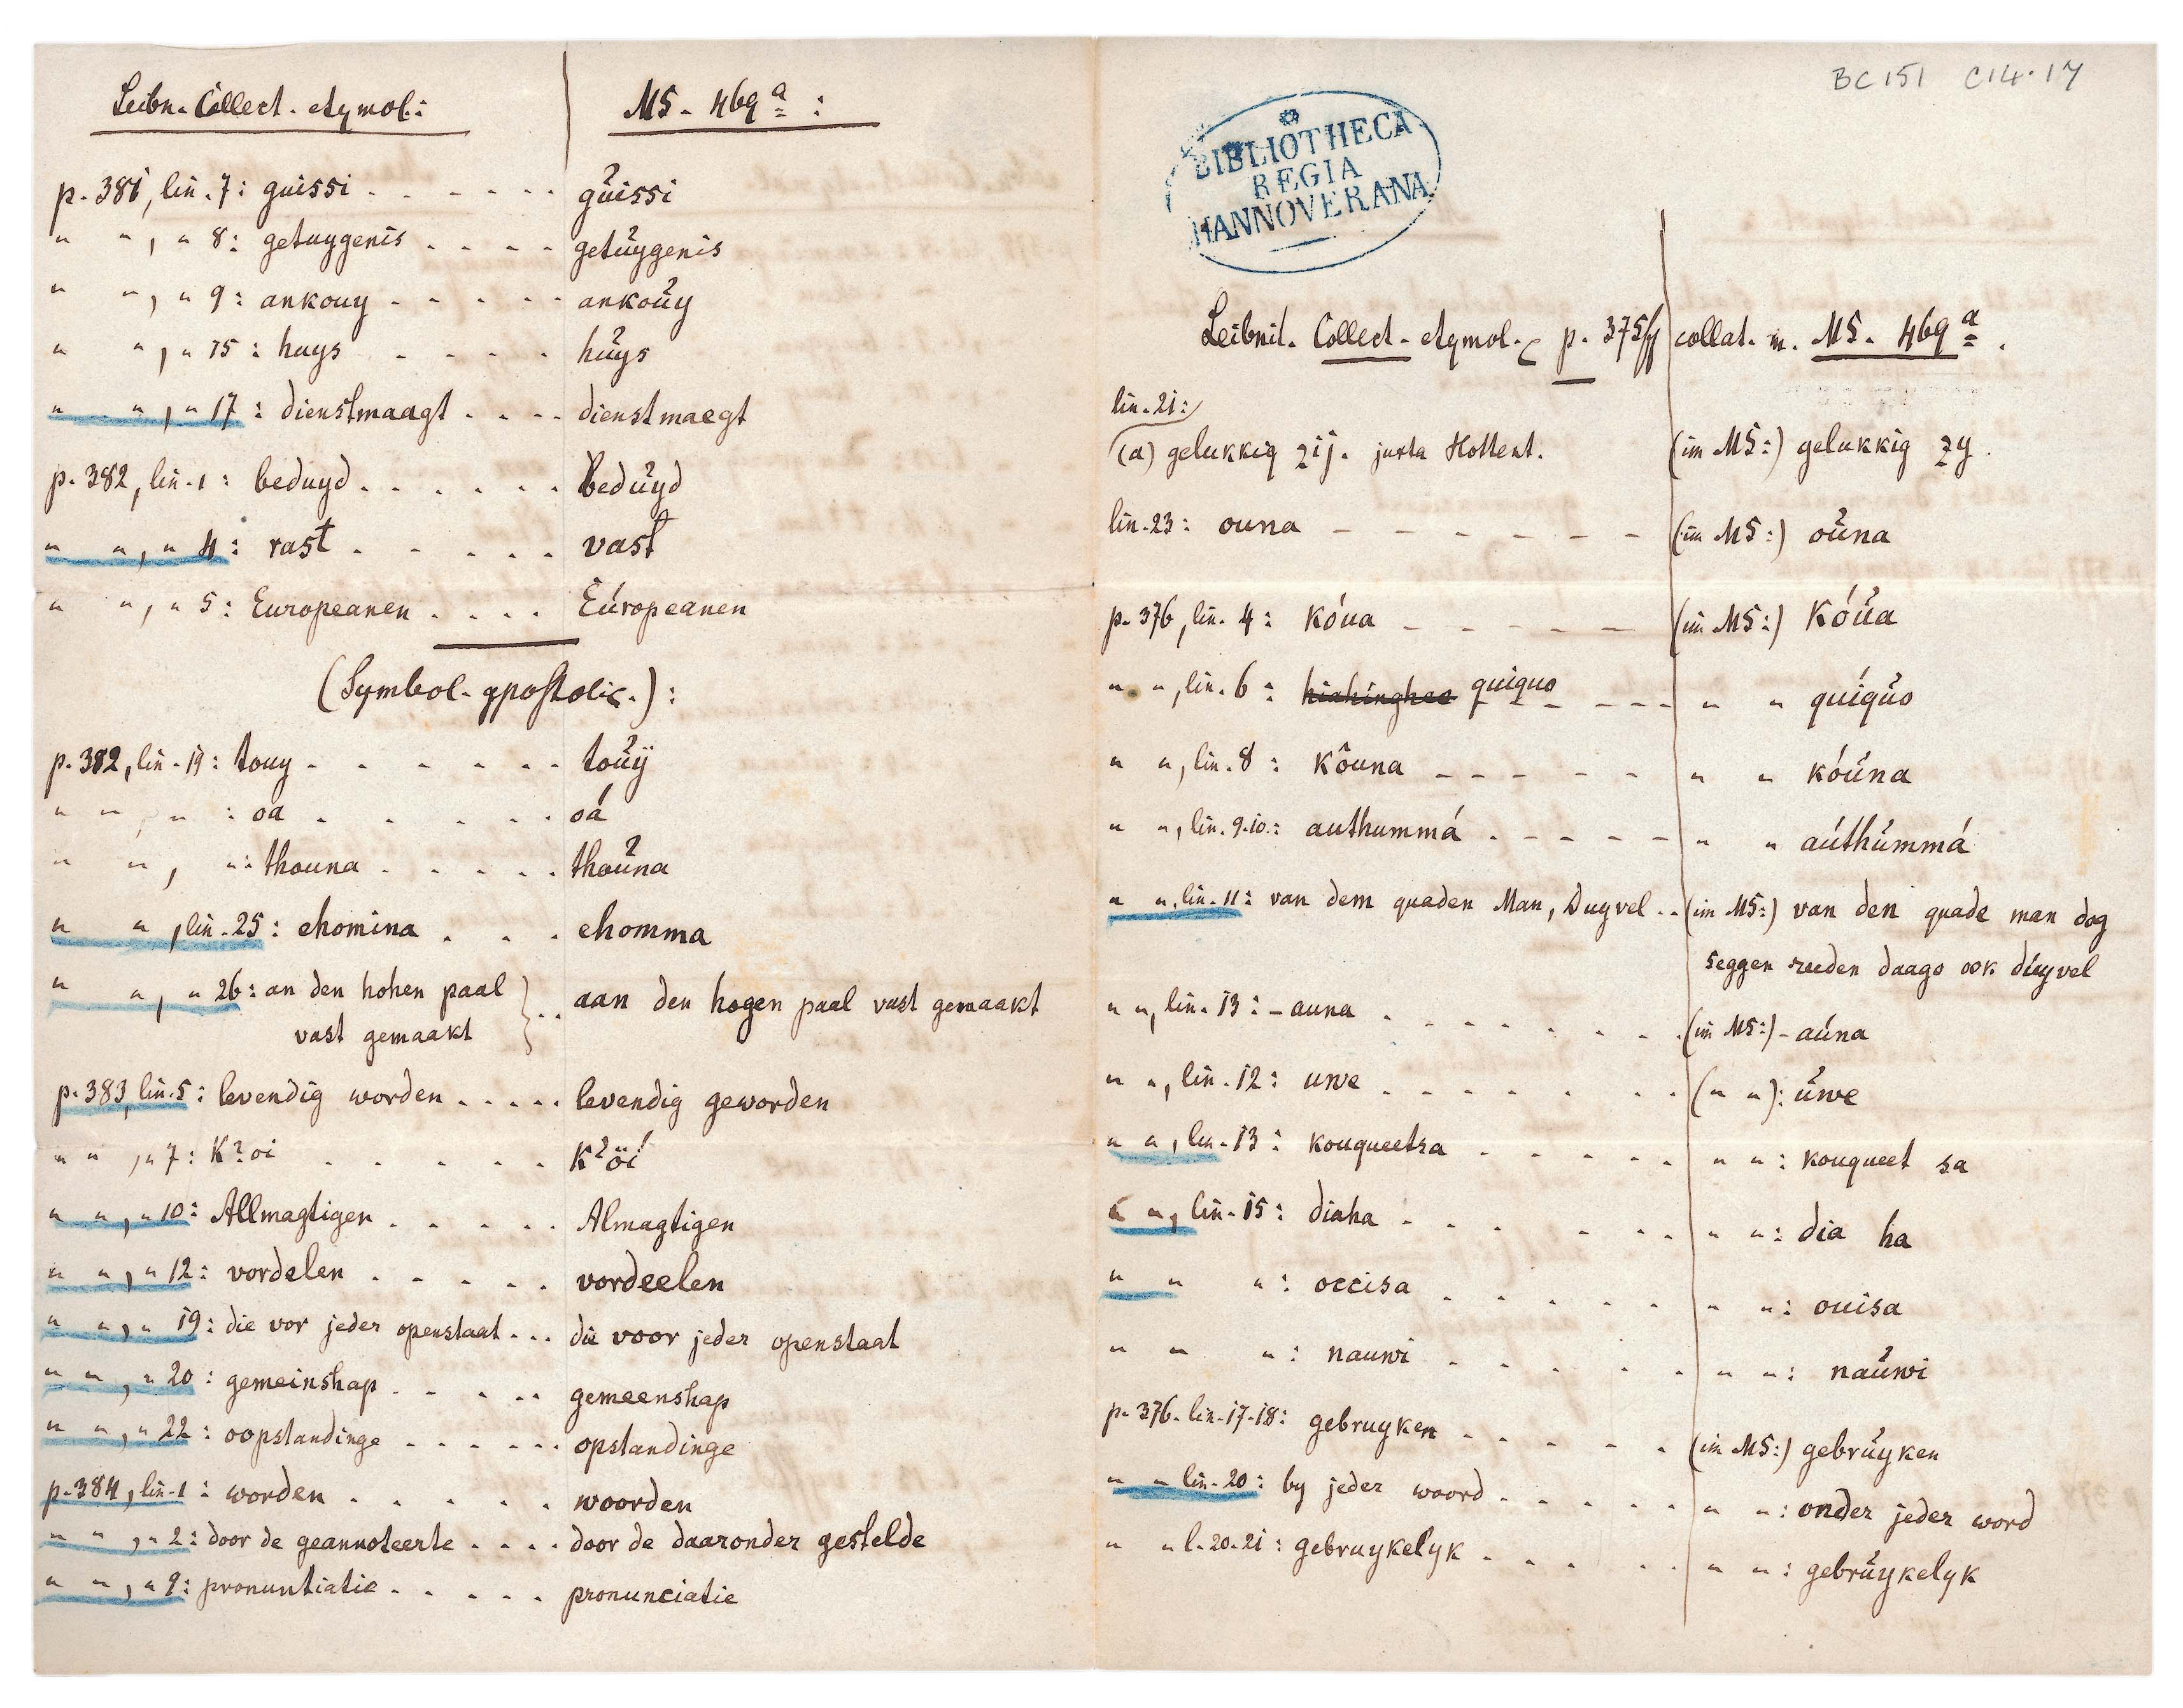 Leibn. Collect. etymol.: MS. 469a:
p. 381, lin. 7: guissi . . . . . . gůissi
" ", " 8: getuygenis . . . . getůygenis
" ", " 9: ankouy . . . . . ankoůy
" ", " 15: huys . . . . hůys
" ", " 17: dienstmaagt . . . . dienstmaegt
p. 382, lin. 1: beduyd . . . . . . bedůyd
" ", " 4: rast . . . . . vast
" ", " 5: Europeanen . . . . Eúropeanen
(Symbol. apostolic.):
p. 382, lin. 19: touy . . . . . . toůÿ
" " " : oa . . . . . oá
" ", " : thouna . . . . . thoůna
" ", lin. 25: ehomina . . . ehomma
" ", " 26: an den hohen paal } . . aan den hogen paal vast gemaakt
vast gemaakt
p. 383, lin. 5: levendig worden . . . . . levendig geworden
" ", " 7: K?oi . . . . . K?öí
" ", " 10: Allmagtigen . . . . . Almagtigen
" ", " 12: vordelen . . . . . vordeelen
" ", " 19: die vor jeder openstaat . . . die voor jeder openstaat
" ", " 20: gemeinshap . . . . . gemeenshap
" ", " 22: oopstandinge . . . . . . opstandinge
p. 384, lin. 1: worden . . . . . woorden
" ", " 2: door de geannoteerte . . . . door de daaronder gestelde
" ", " 9: pronuntiatie . . . . . pronunciatie
BC151 C14.17
BIBLIOTHECA
REGIA
HANNOVERANA
Leibnit. Collect. etymol. p. 375 collat. m. MS. 469a.
lin. 21:
(a) gelukkig zij. juxta Hottent. (im MS:) gelukkig zy.
lin. 23: ouna - - - - - - (im MS:) oůna
p. 376, lin. 4: kóua - - - - - (im MS:) kóůa
" ", lin. 6: hiahinghee quiquo - - - - " " quíqůo
" ", lin. 8: kôuna - - - - - " " kóůna
" ", lin. 9.10.: authummá . - - - - " " aúthůmmá
" ", lin. 11: van dem quaden Man, Duyvel . . (im MS:) van den quade man dog
seggen reeden daags ook důyvel
" ", lin. 13: - auna . . . . . . . (im MS:) - aúna
" ", lin. 12: uwe . . . . . . . (" "): ůwe
" ", lin. 13: kouqueetsa . . . . . " ": kouqueet sa
" ", lin. 15: diaha . . . . . . " ": dia ha
" " ": occisa . . . . . " ": ouisa
" " ": nauwi . . . . . " ": naůwi
p. 376. lin. 17-18: gebruyken . . . . . (im MS:) gebrůyken
" " lin. 20: by jeder woord . . . . . " ": onder jeder word
" " l. 20.21: gebruykelyk . . . . " ": gebrůykelyk